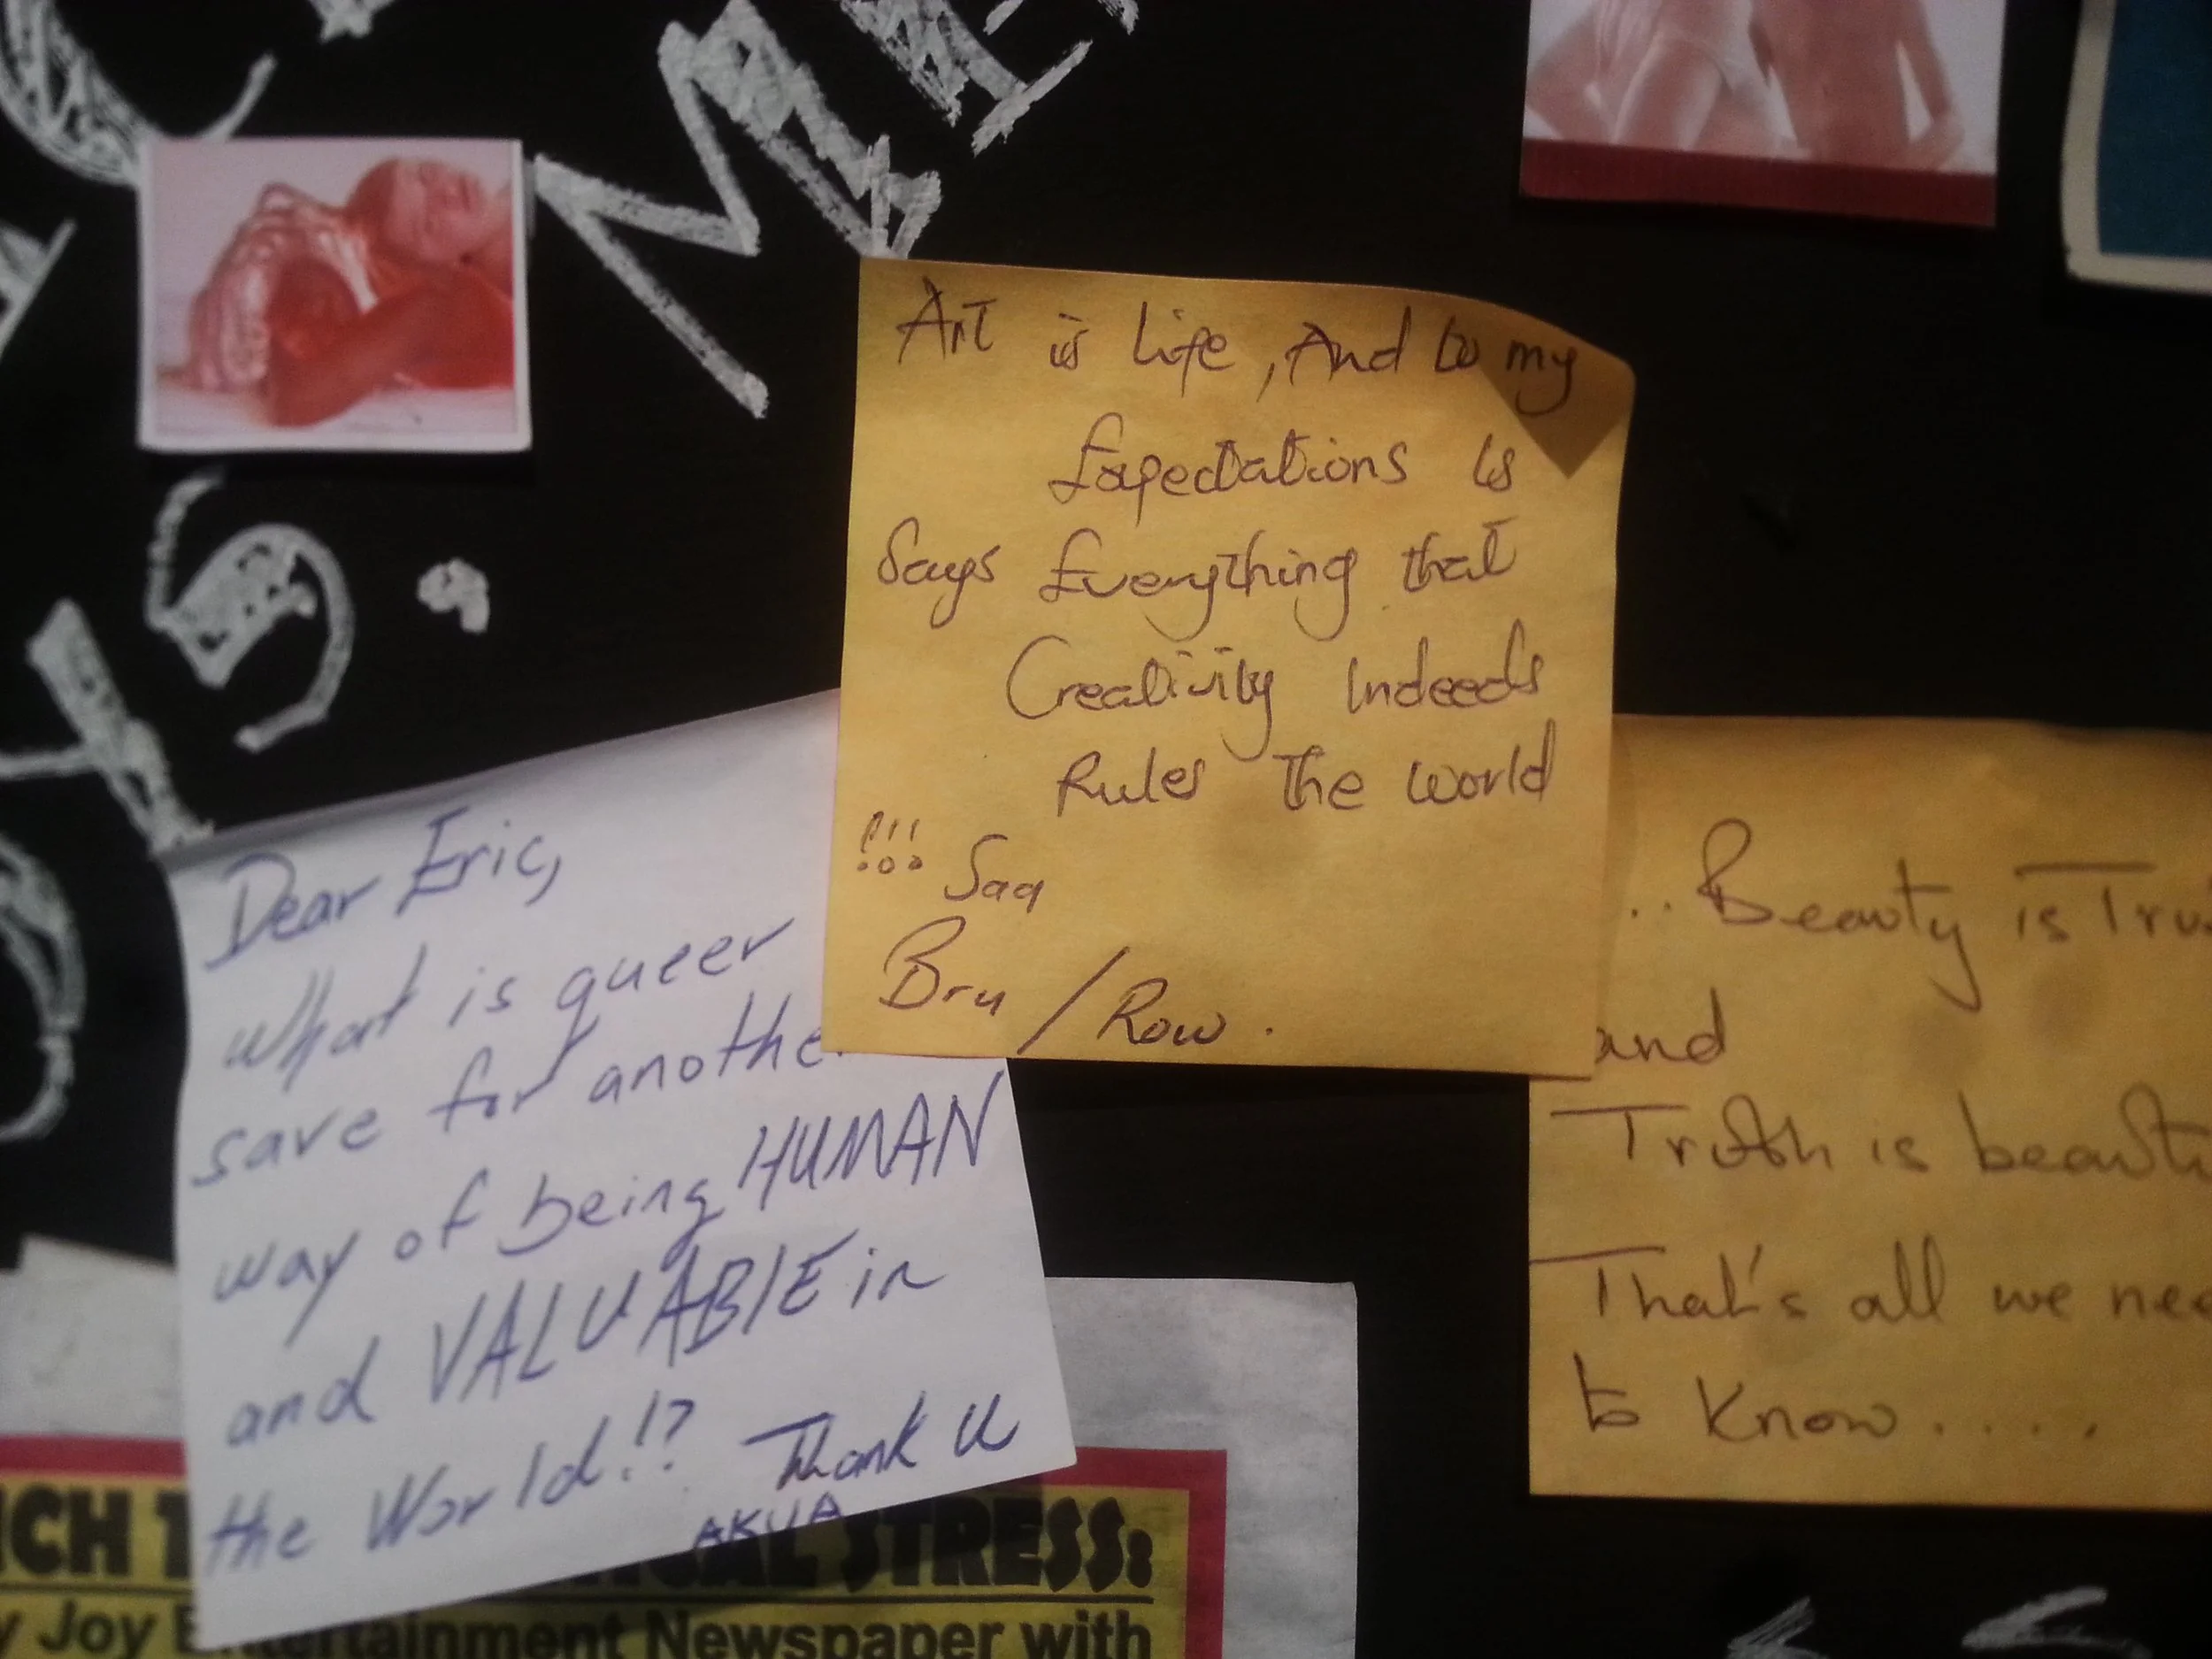 Art is life, And to my
Expectations is
Says Everything that
Creativity Indeeds
Rules The world
!!! Saa
Bru / Row.
Dear Eric,
What is queer
save for anothe
way of being HUMAN
and VALUABLE in
the World!?
Thank U
AKUA
.. Beauty is Tru
and
Truth is beauti
That's all we nee
to know.....
ICH T CAL STRESS:
y Joy Entertainment Newspaper with